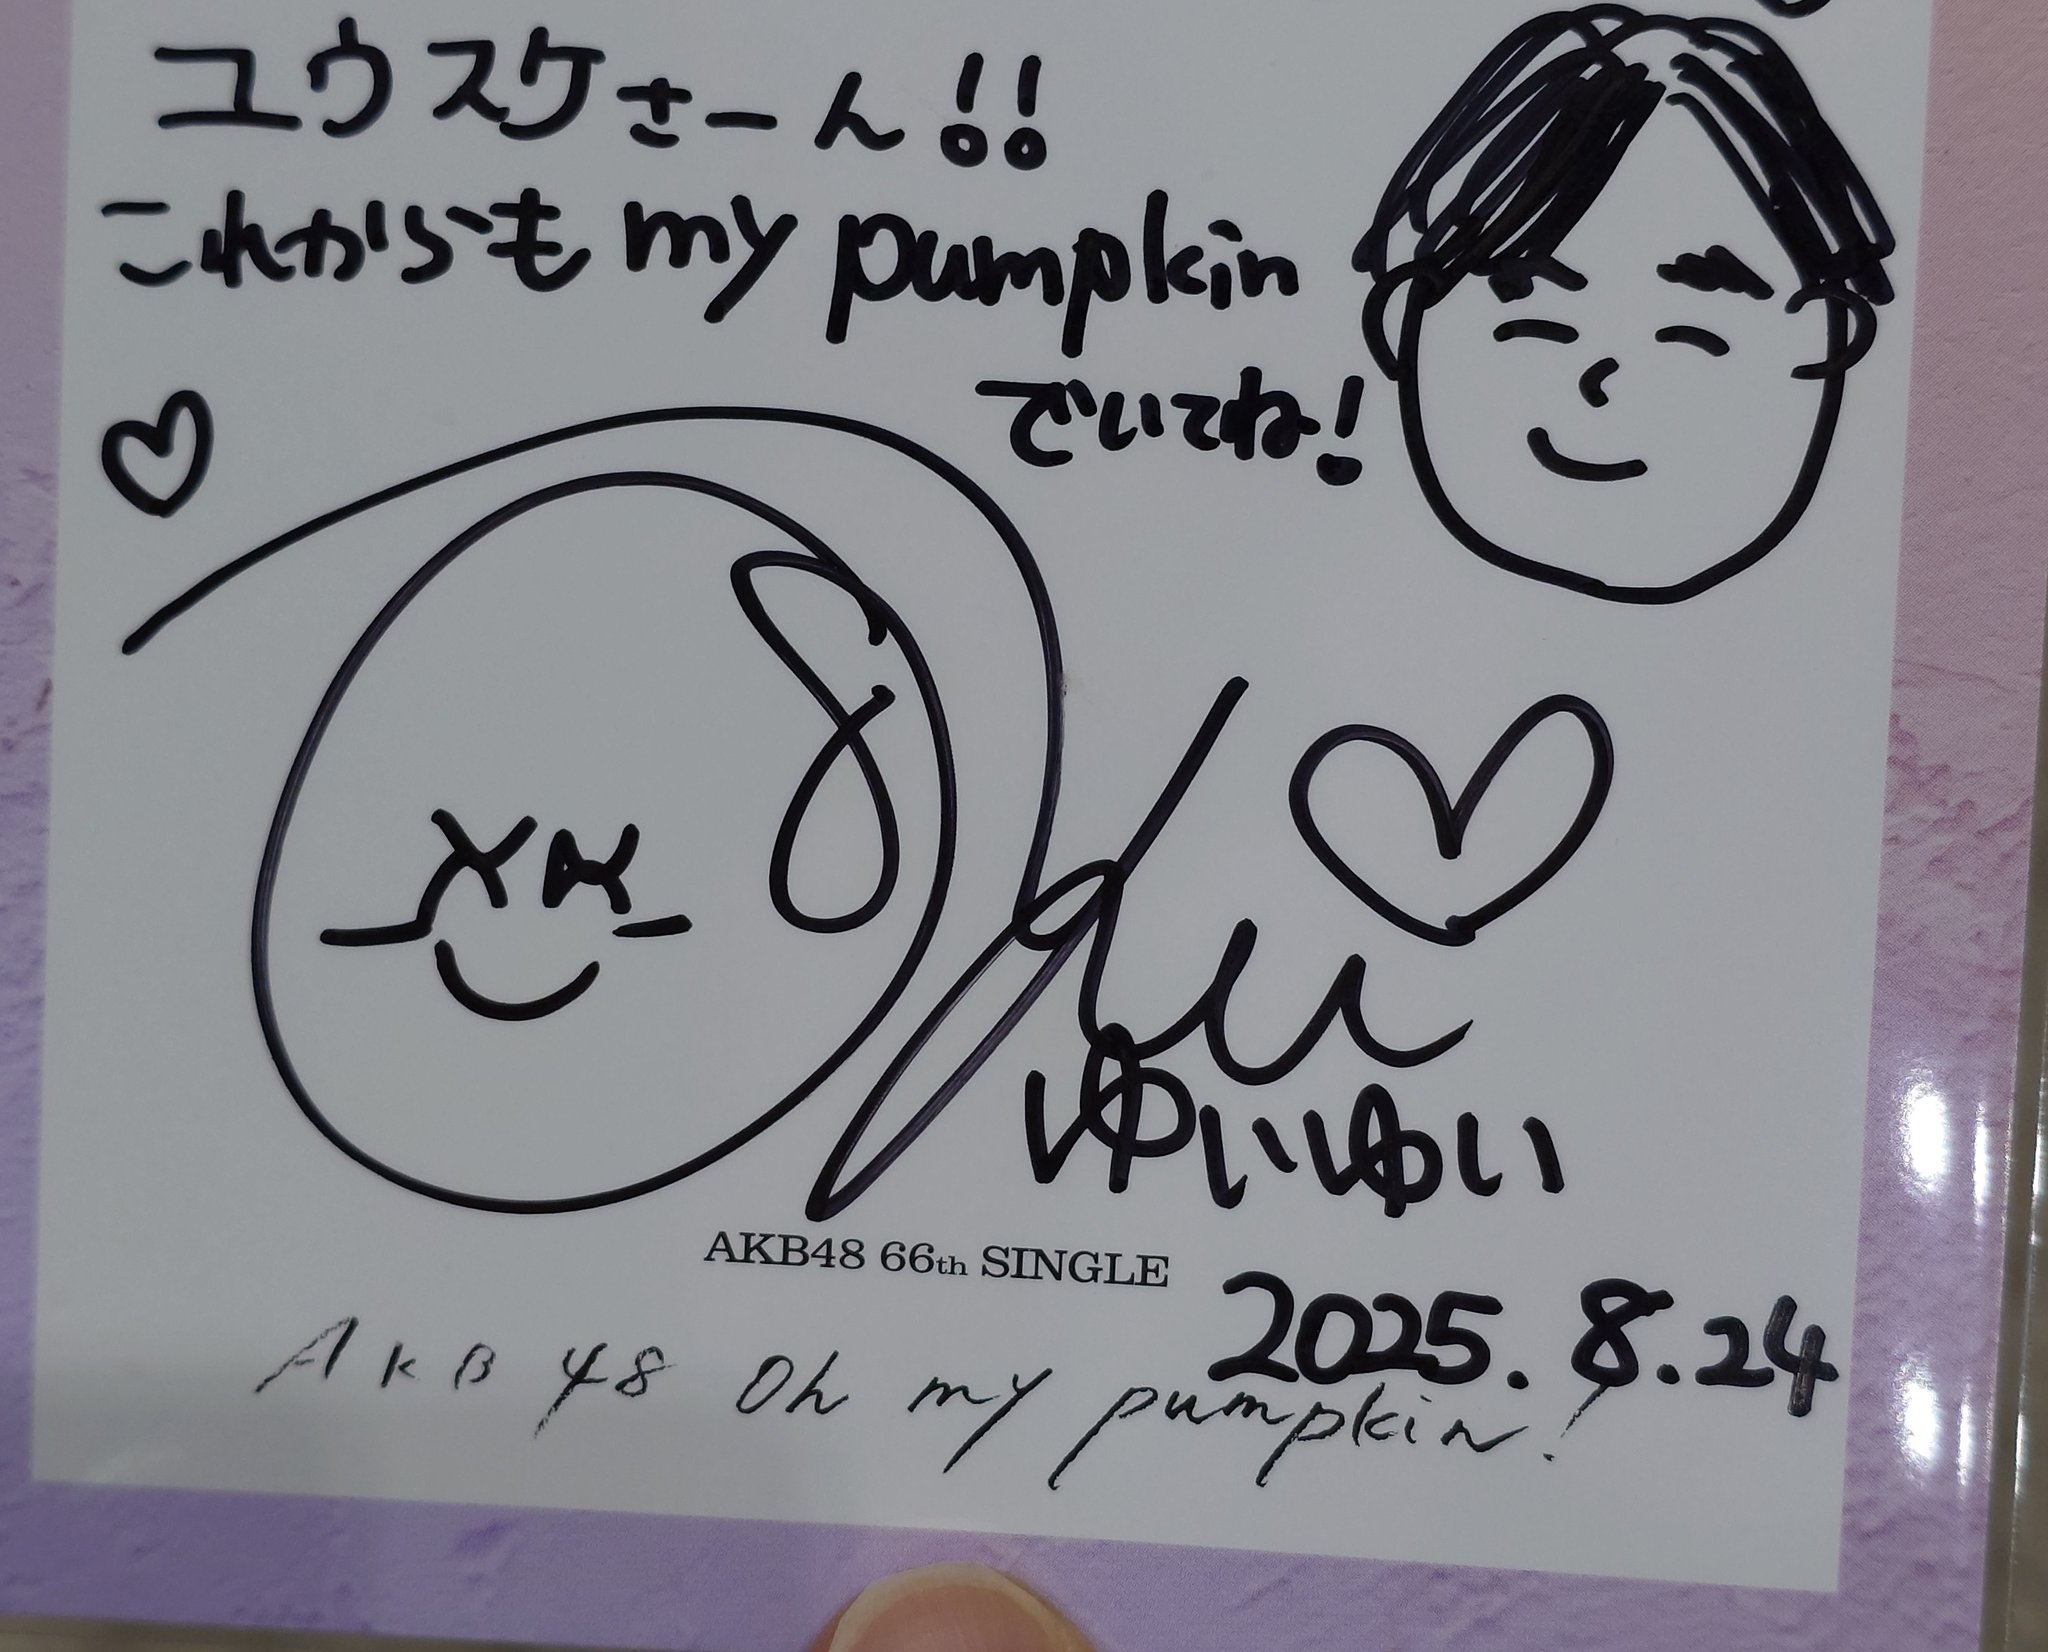 ユウスケさーん!!
これからも my pumpkin
でいてね!
ゆいゆい
AKB48 66th SINGLE
2025.8.24
AKB48 Oh my pumpkin!